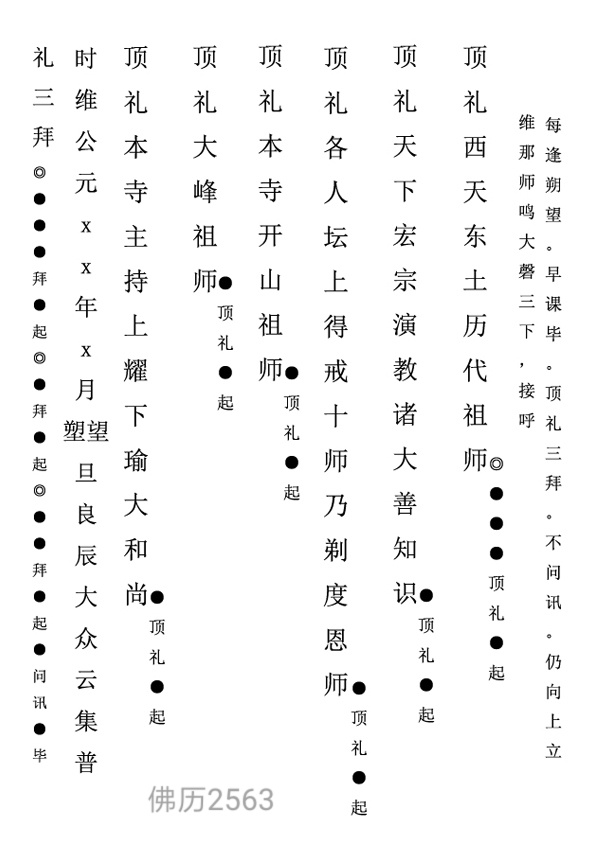 每逢朔望。早课毕。顶礼三拜。不问讯。仍向上立
维那师鸣大磬三下，接呼
顶礼西天东土历代祖师◎●●●顶礼●起
顶礼天下宏宗演教诸大善知识●顶礼●起
顶礼各人坛上得戒十师乃剃度恩师●顶礼●起
顶礼本寺开山祖师●顶礼●起
顶礼大峰祖师●顶礼●起
顶礼本寺主持上耀下瑜大和尚●顶礼●起
时维公元xx年x月塑望旦良辰大众云集普
礼三拜◎●●●拜●起◎●拜●起◎●●拜●起●问讯●毕
佛历2563